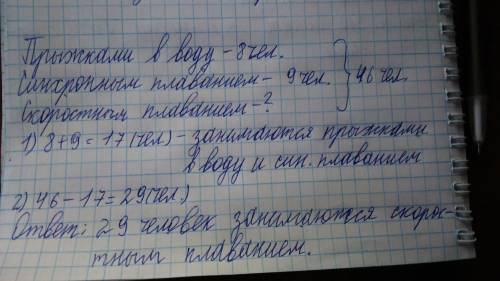 Прыжками в воду - 8 чел.
Синхронным плаванием - 9 чел. } 46 чел.
Скоростным плаванием - ?
1) 8+9=17(чел) - занимаются прыжками
в воду и син. плаванием
2) 46-17=29(чел)
Ответ: 29 человек занимаются скорос-
тным плаванием.